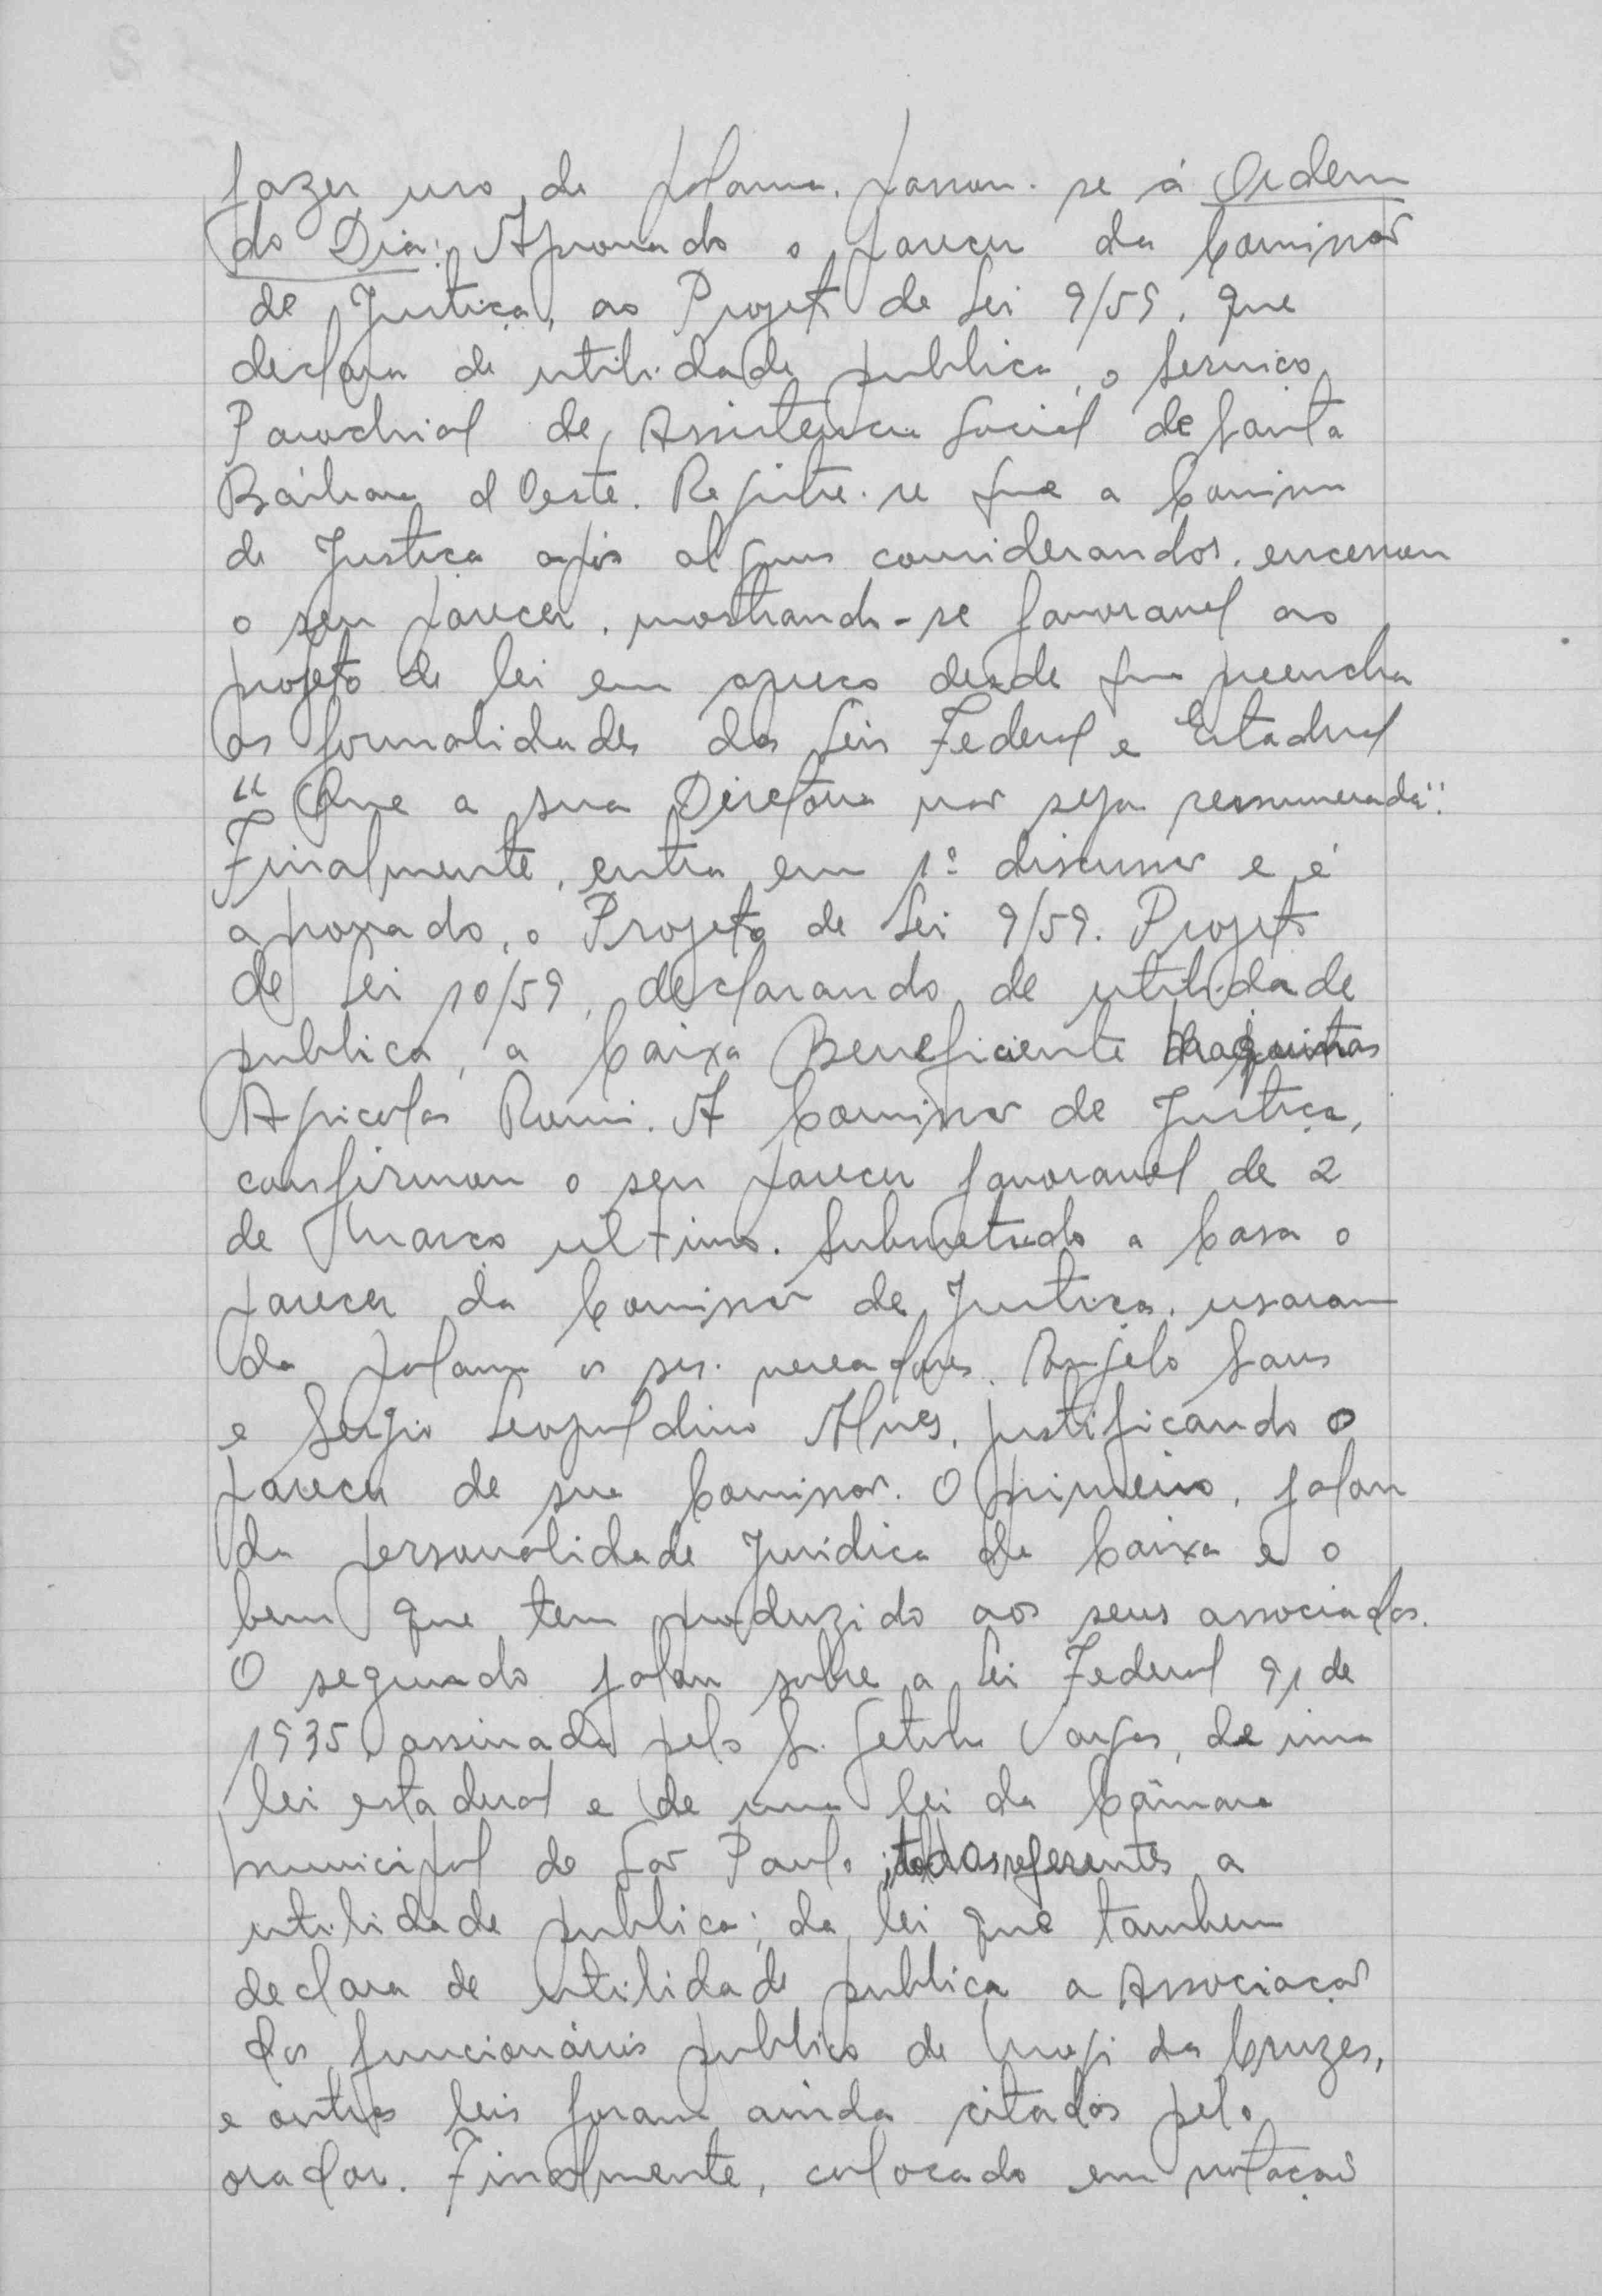 fazer uso da palavra, passou-se á Ordem
do Dia: Aprovado o parecer da Comissão
de Justiça, ao Projeto de Lei 9/59, que
declara de utilidade publica, o Serviço
Parochial de Assistencia Social de Santa
Bárbara d Oeste. Registre-se que a Comissão
de Justiça após alguns considerandos, encerrou
o seu parecer, mostrando-se favoravel ao
projeto de lei em apreco desde que preencha
as formalidades das Leis Federal e Estadual
"Que a sua Diretoria não seja remunerada".
Finalmente, entra em 1º discussão e é
aprovado, o Projeto de Lei 9/59. Projeto
de Lei 10/59, declarando de utilidade
publica, a Caixa Beneficiente Maquinas
Agricolas Romi. A Comissão de Justiça,
confirmou o seu parecer favoravel de 2
de Março ultimo. Submetido a Casa o
parecer da Comissão de Justiça, usaram
da palavra os srs. vereadores, Angelo Sans
e Sergio Leopoldino Alves, justificando o
parecer de sua Comissão. O primeiro, falou
da personalidade Juridica da Caixa e o
bem que tem produzido aos seus associados.
O segundo falou sobre a Lei Federal 91 de
1935, assinada pelo Sr. Getulio Vargas, de uma
lei estadual e de uma lei da Câmara
Municipal de São Paulo, todas referentes a
utilidade publica; da lei que tambem
declara de utilidade publica a Associação
dos funcionários publicos de Mogi da Cruzes,
e outras leis foram ainda citados pelo
orador. Finalmente, colocado em votação